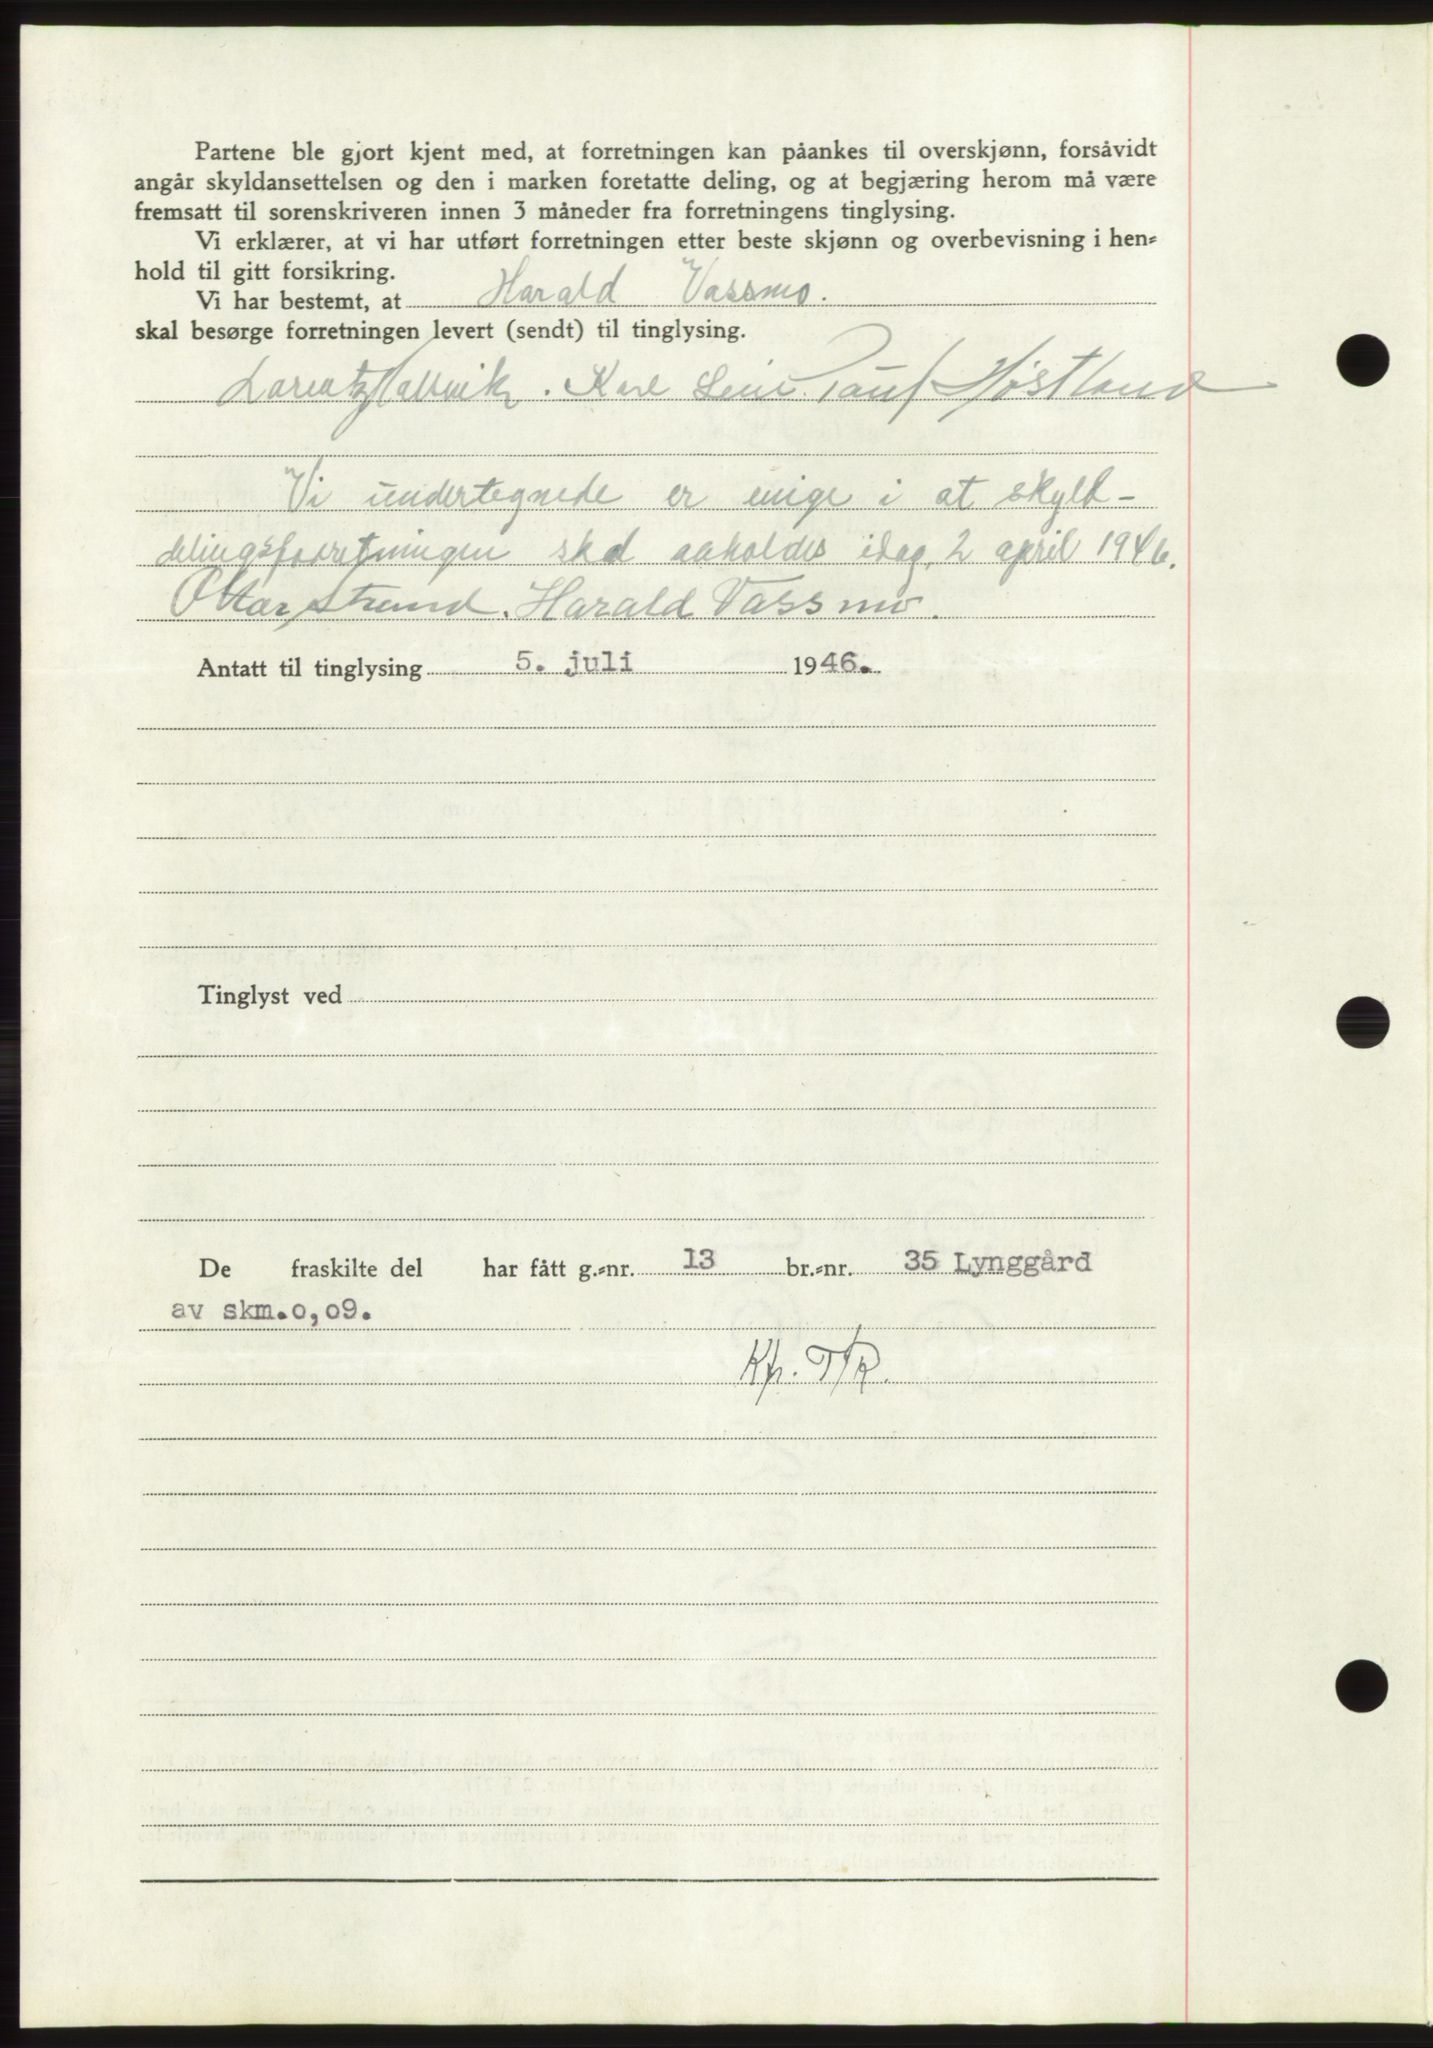 Partene ble gjort kjent med, at forretningen kan påankes til overskjønn, forsåvidt
angår skyldansettelsen og den i marken foretatte deling, og at begjæring herom må være
fremsatt til sorenskriveren innen 3 måneder fra forretningens tinglysing.
Vi erklærer, at vi har utført forretningen etter beste skjønn og overbevisning i hen-
hold til gitt forsikring.
Vi har bestemt, at Harald Vassmo.
skal besørge forretningen levert (sendt) til tinglysing.
Karl Paul Høstland
Vi undertegnede er enige i at skyld-
delingsforretningen skal avholdes idag, 2 april 1946.
Ottar Strand. Harald Vassmo.
Antatt til tinglysing 5. juli 1946.
Tinglyst ved
De fraskilte del har fått g.-nr. 13 br.-nr. 35 Lynggård
av skm.o,o9.
Kfr. T/R.